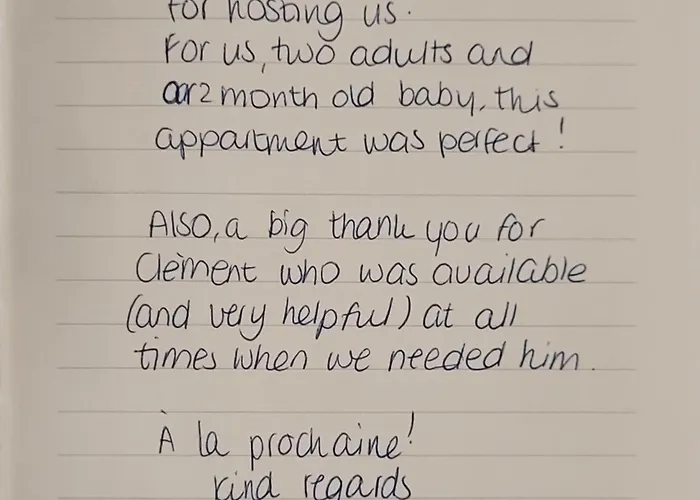 for hosting us.
For us, two adults and
our 2 month old baby, this
appartment was perfect!
Also, a big thank you for
Clèment who was available
(and very helpful) at all
times when we needed him.
À la prochaine!
kind regards